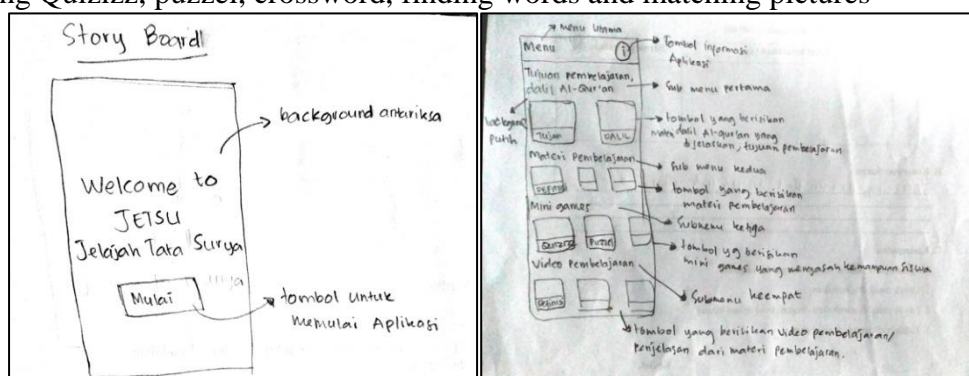 ng Quizizz, puzzel, crossword, finding words and matching pictures
Story Board
background antariksa
Welcome to
JETSU
Jelajah Tata Surya
Mulai
tombol untuk
memulai Aplikasi
menu utama
Menu
i
Tombol informasi
Aplikasi
Tujuan pembelajaran,
dalil Al-Qur'an
Sub menu pertama
background
putih
Tujuan
DALIL
tombol yang berisikan
materi dalil Al-qur'an yang
dijelaskan, tujuan pembelajaran
Materi Pembelajaran
Sub menu kedua
tombol yang berisikan
materi pembelajaran
Mini games
Submenu ketiga
tombol yg berisikan
mini games yang mengasah kemampuan siswa
Video Pembelajaran
Submenu keempat
tombol yang berisikan video pembelajaran/
penjelasan dari materi pembelajaran.